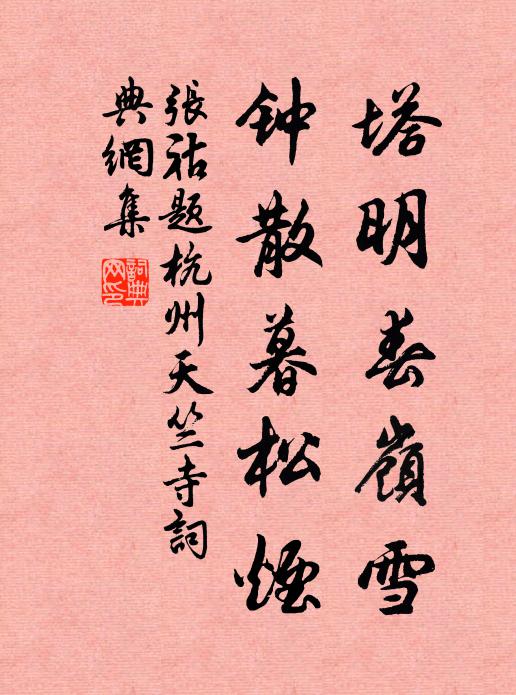 塔明春嶺雪
钟散暮松煙
張祜題杭州天竺寺詞
典網集
詞典网印